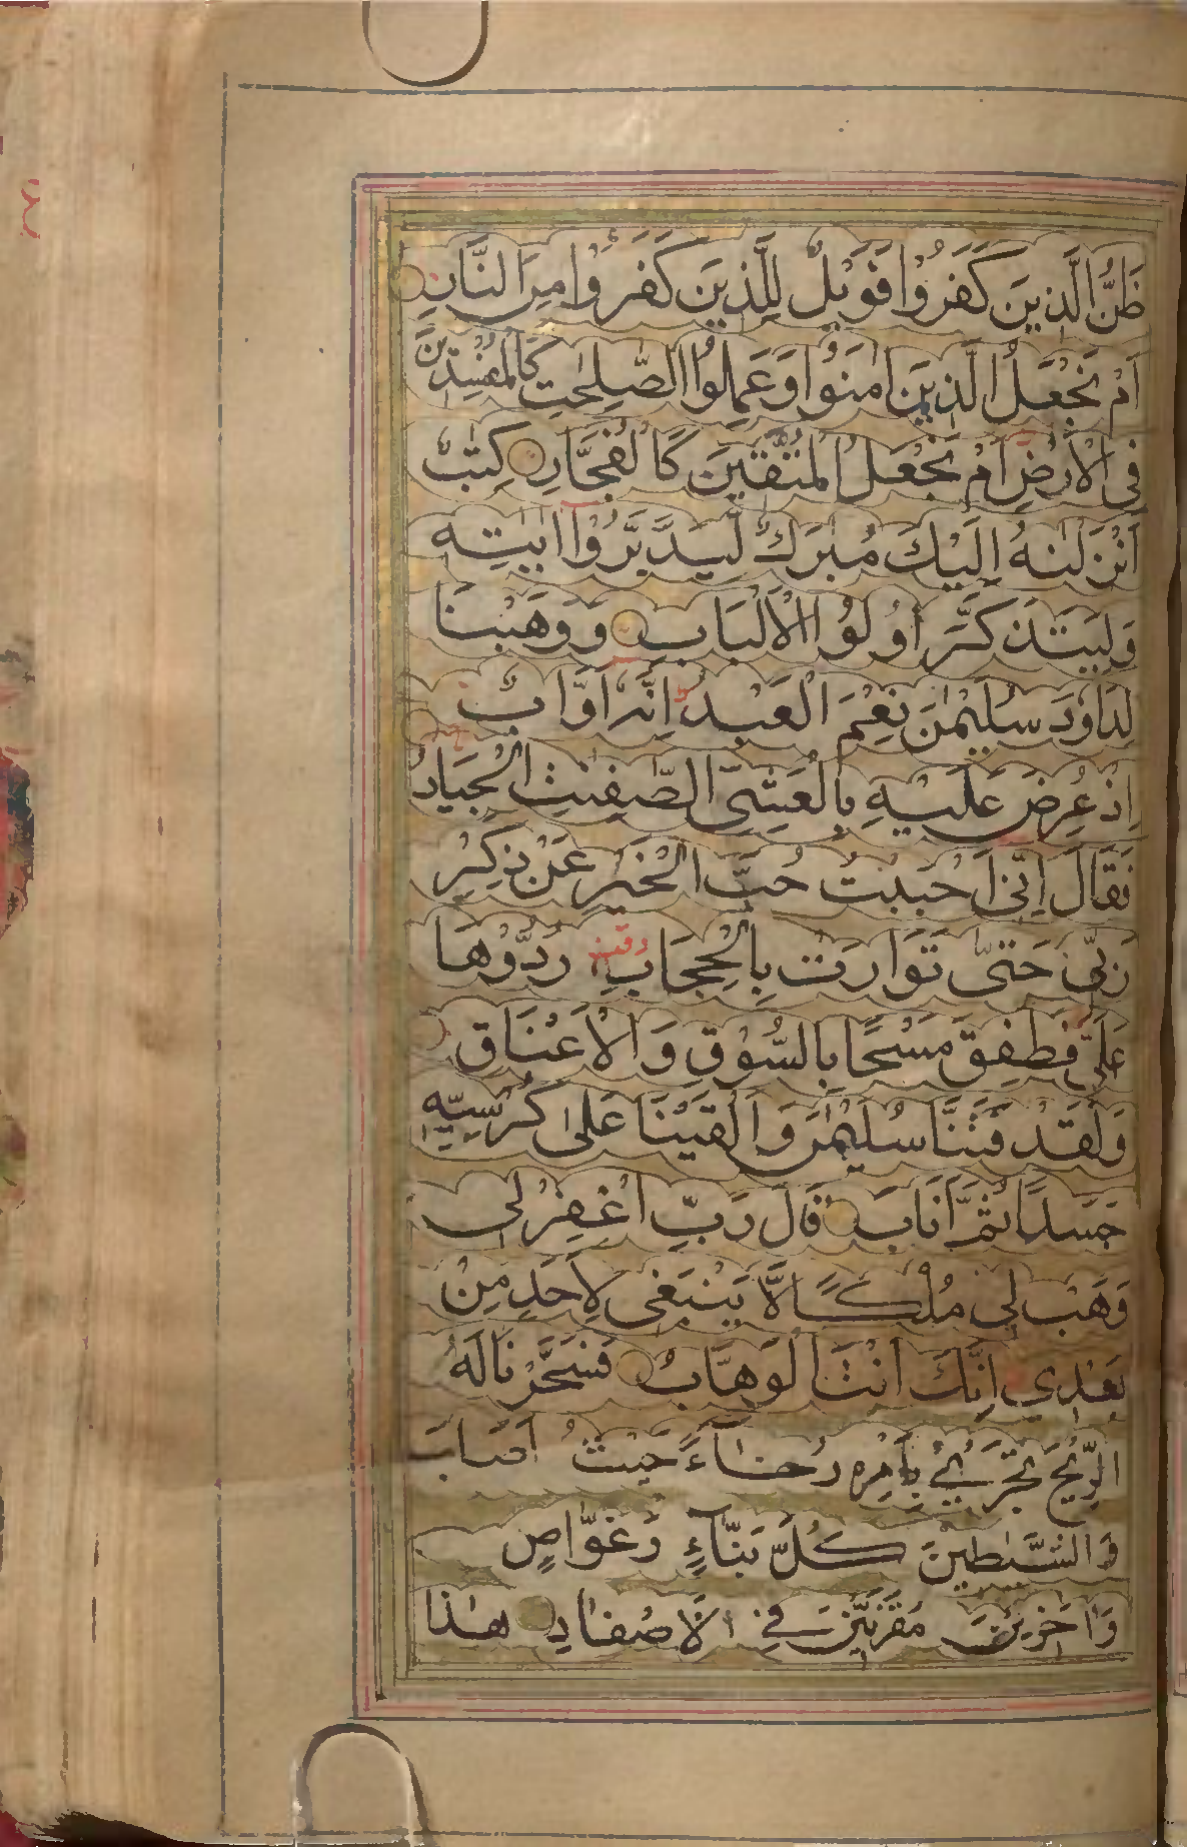 ظَنُّ الَّذِينَ كَفَرُوْا فَوَيْلٌ لِلَّذِينَ كَفَرُوْا مِنَ النَّارِ
اَمْ نَجْعَلُ الَّذِينَ اٰمَنُوْا وَعَمِلُوا الصّٰلِحٰتِ كَالْمُفْسِدِيْنَ
فِي الْاَرْضِ اَمْ نَجْعَلُ الْمُتَّقِيْنَ كَالْفُجَّارِ كِتٰبٌ
اَنْزَلْنٰهُ اِلَيْكَ مُبٰرَكٌ لِّيَدَّبَّرُوْا اٰيٰتِهٖ
وَلِيَتَذَكَّرَ اُولُوا الْاَلْبَابِ وَوَهَبْنَا
لِدَاوٗدَ سُلَيْمٰنَ نِعْمَ الْعَبْدُ اِنَّهٗ اَوَّابٌ
اِذْ عُرِضَ عَلَيْهِ بِالْعَشِيِّ الصّٰفِنٰتُ الْجِيَادُ
فَقَالَ اِنِّىْ اَحْبَبْتُ حُبَّ الْخَيْرِ عَنْ ذِكْرِ
رَبِّىْ حَتّٰى تَوَارَتْ بِالْحِجَابِ رُدُّوْهَا
عَلَىَّ فَطَفِقَ مَسْحًا بِالسُّوْقِ وَالْاَعْنَاقِ
وَلَقَدْ فَتَنَّا سُلَيْمٰنَ وَاَلْقَيْنَا عَلٰى كُرْسِيِّهٖ
جَسَدًا ثُمَّ اَنَابَ قَالَ رَبِّ اغْفِرْلِى
وَهَبْ لِي مُلْكًا لَّا يَنْبَغِى لِاَحَدٍ مِنْ
بَعْدِى اِنَّكَ اَنْتَ الْوَهَّابُ فَسَخَّرْنَا لَهُ
الرِّيْحَ تَجْرِيْ بِاَمْرِهٖ رُخَآءً حَيْثُ اَصَابَ
وَالشَّيٰطِيْنَ كُلَّ بَنَّآءٍ وَّغَوَّاصٍ
وَاٰخَرِيْنَ مُقَرَّنِيْنَ فِي الْاَصْفَادِ هٰذَا